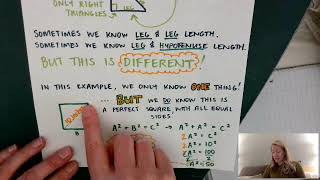 ONLY RIGHT
TRIANGLES
LEG
SOMETIMES WE KNOW LEG & LEG LENGTH.
SOMETIMES WE KNOW LEG & HYPOTENUSE LENGTH.
BUT THIS IS DIFFERENT!
IN THIS EXAMPLE, WE ONLY KNOW ONE THING!
... BUT WE DO KNOW THIS IS
A PERFECT SQUARE WITH ALL EQUAL
SIDES!
A² + B² = C² → A² + A² = C²
2A² = C²
2A² = 10²
2A² = 100
2 2
A² = 50
B